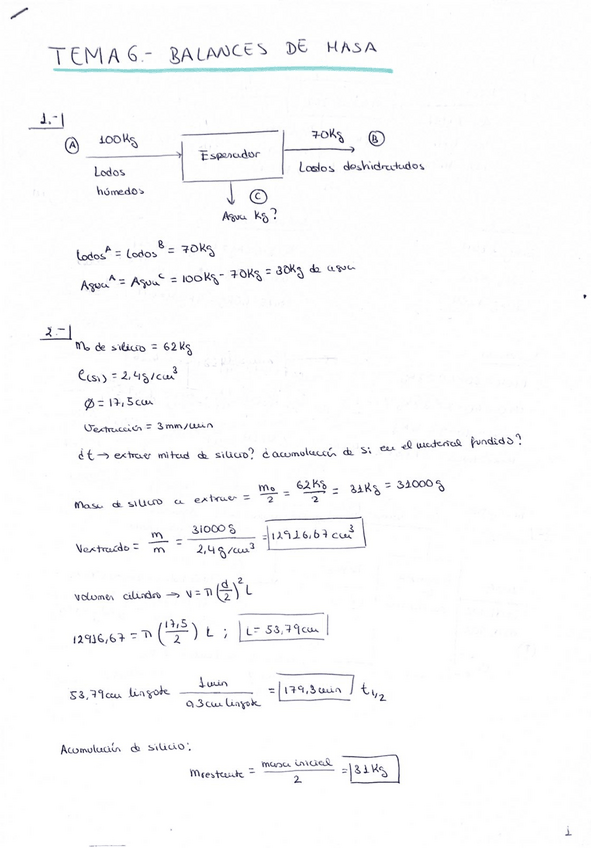 TEMA 6.- BALANCES DE MASA
1.-
A 100Kg Espesador 70Kg B
Lodos húmedos Lodos deshidratados
C
Agua Kg?
Lodos^A = Lodos^B = 70Kg
Agua^A = Agua^C = 100Kg - 70Kg = 30Kg de agua
2.-
m₀ de silicio = 62Kg
ρ(Si) = 2,4g/cm³
Ø = 17,5cm
Vextracción = 3mm/min
¿t → extraer mitad de silicio? ¿acumulación de Si en el material fundido?
Masa de silicio a extraer = m₀/2 = 62Kg/2 = 31Kg = 31000g
Vextraído = m/m = 31000g/2,4g/cm³ = 12916,67 cm³
volumen cilindro → V = π(d/2)² L
12916,67 = π(17,5/2) L ; L = 53,79cm
53,79cm lingote 1min/0,3cm lingote = 179,3min t₁/₂
Acumulación de silicio:
Mrestante = masa inicial/2 = 31Kg
1